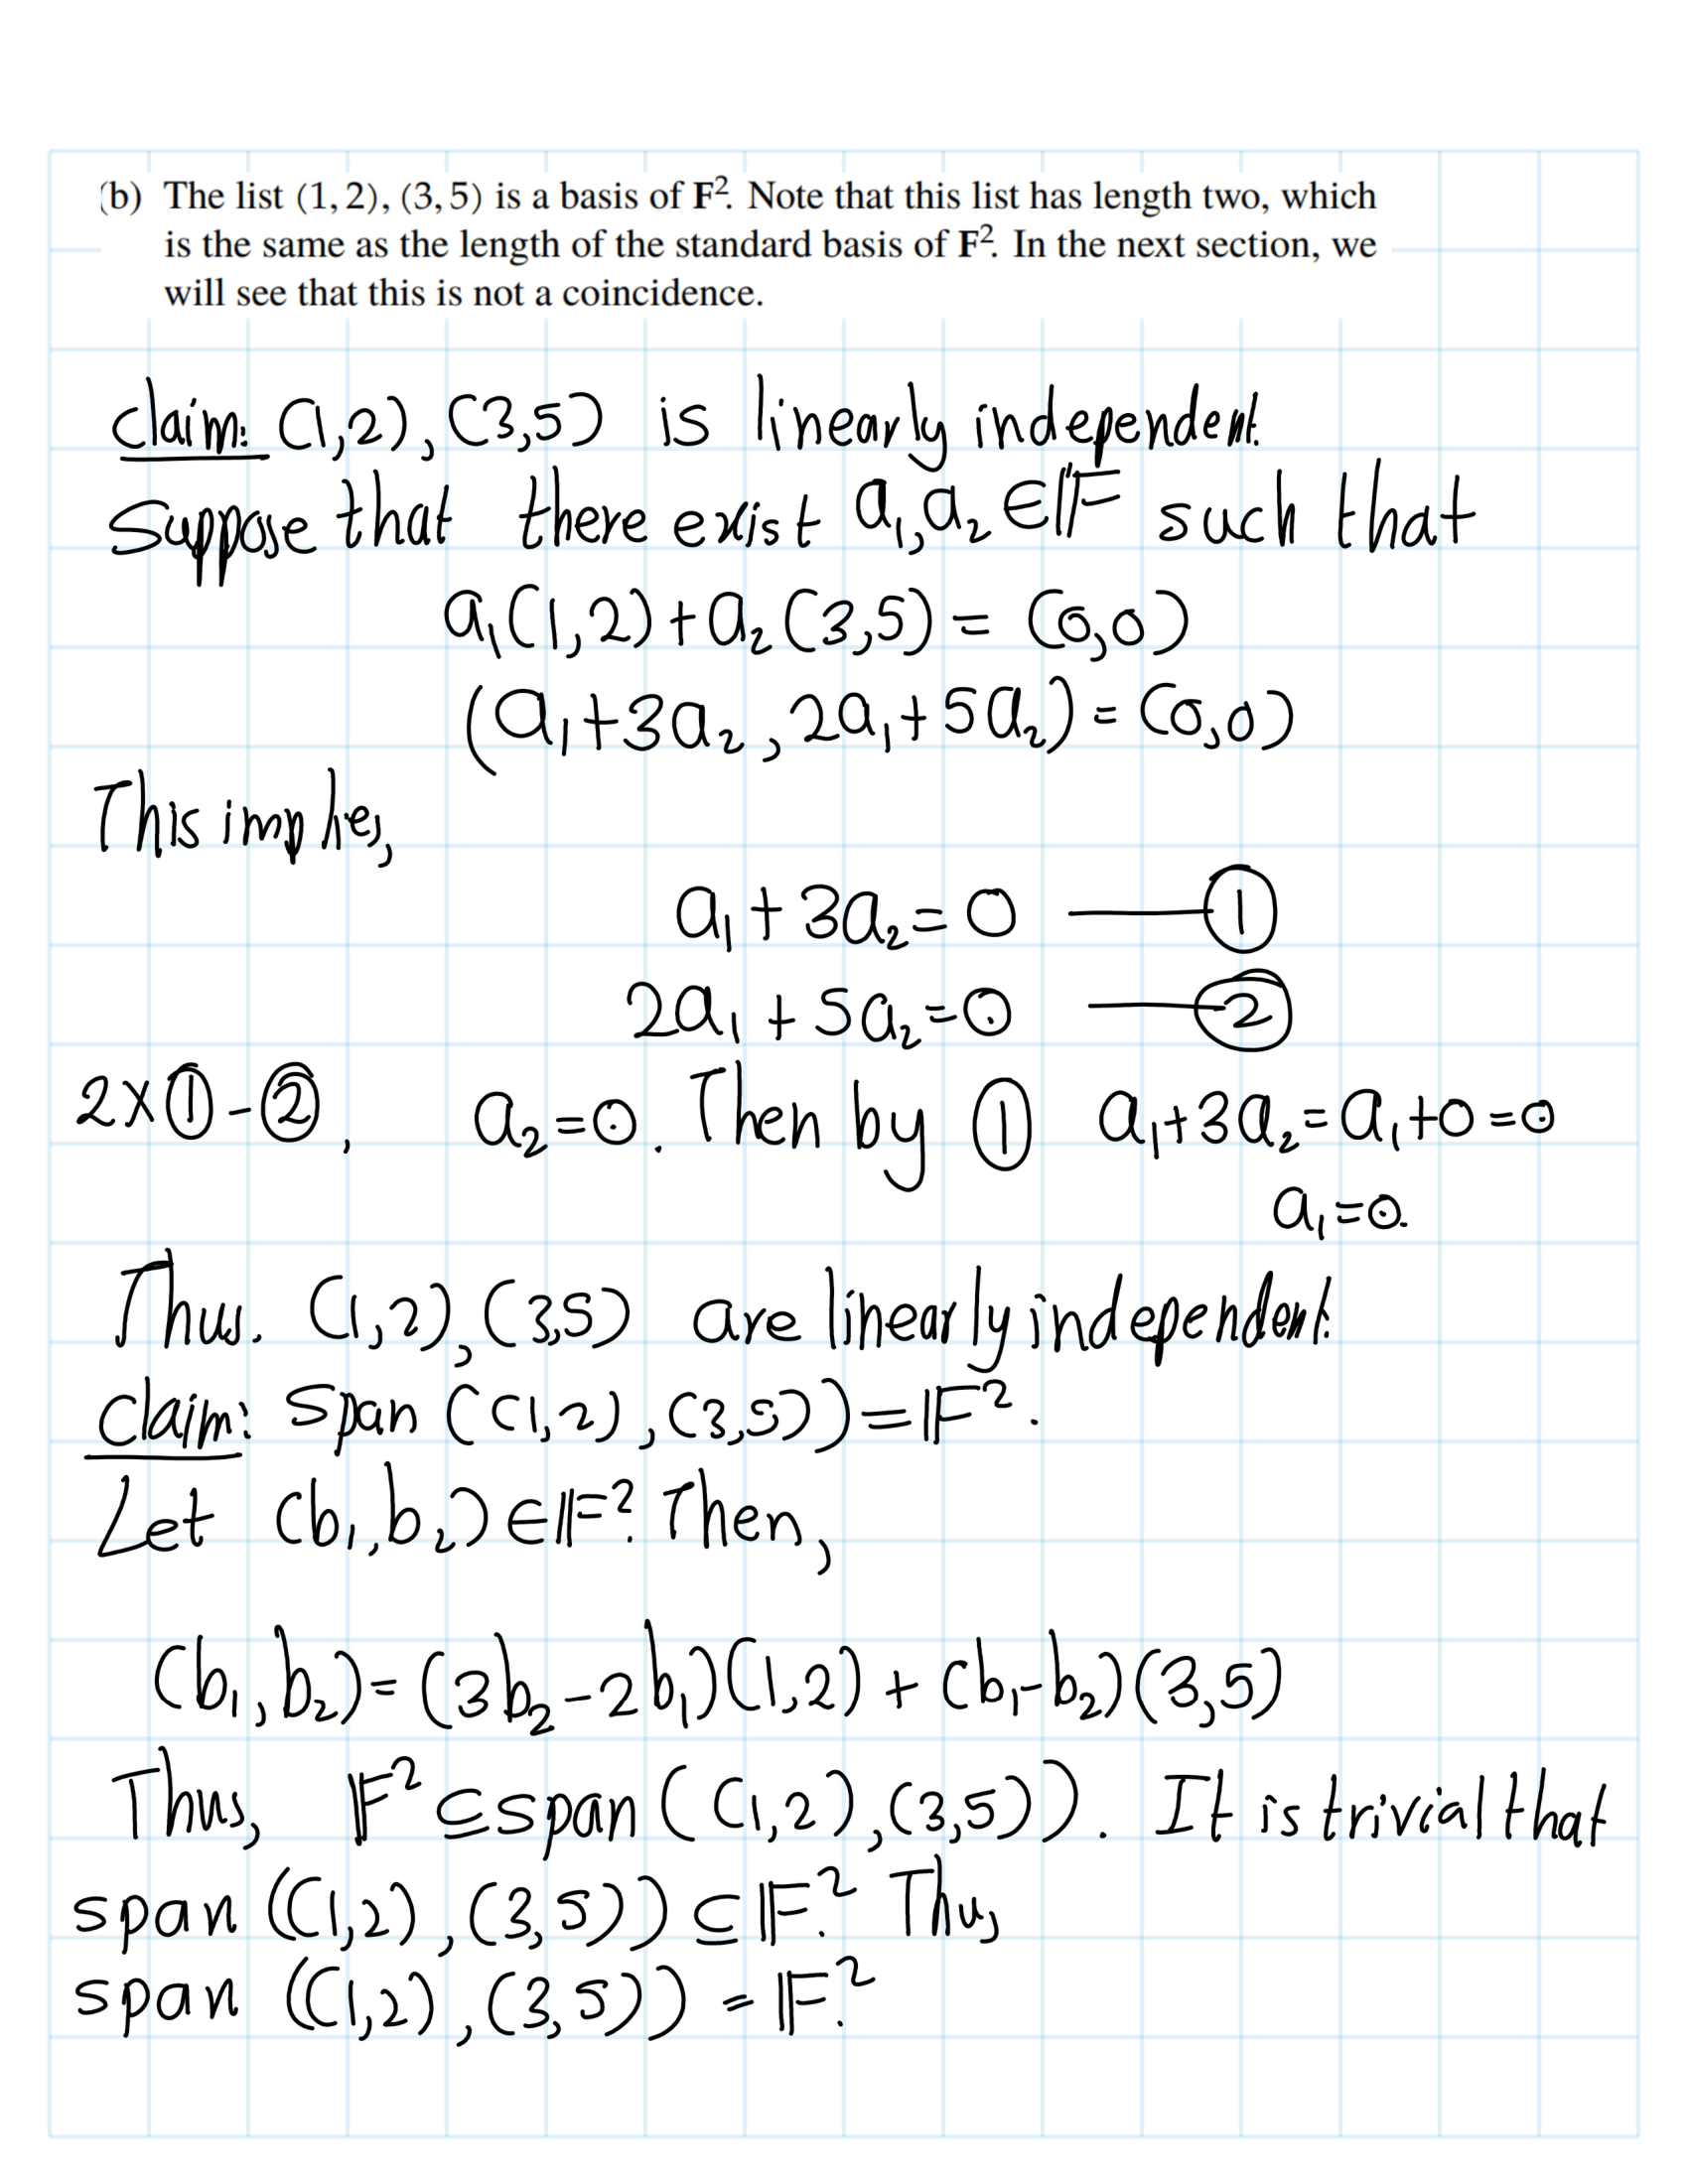 (b) The list (1, 2), (3, 5) is a basis of F². Note that this list has length two, which
is the same as the length of the standard basis of F². In the next section, we
will see that this is not a coincidence.
claim: (1,2), (3,5) is linearly independent.
Suppose that there exist a₁,a₂ ∈ 𝔽 such that
a₁(1,2)+a₂(3,5) = (0,0)
(a₁+3a₂, 2a₁+5a₂) = (0,0)
This implies,
a₁+3a₂=0 — ①
2a₁+5a₂=0 — ②
2×①-②, a₂=0. Then by ① a₁+3a₂=a₁+0=0
a₁=0.
Thus. (1,2), (3,5) are linearly independent.
claim: span ((1,2), (3,5))=𝔽².
Let (b₁,b₂)∈𝔽². Then,
(b₁,b₂)=(3b₂-2b₁)(1,2)+(b₁-b₂)(3,5)
Thus, 𝔽²⊆span((1,2),(3,5)). It is trivial that
span ((1,2),(3,5))⊆𝔽². Thus
span ((1,2),(3,5)) = 𝔽².